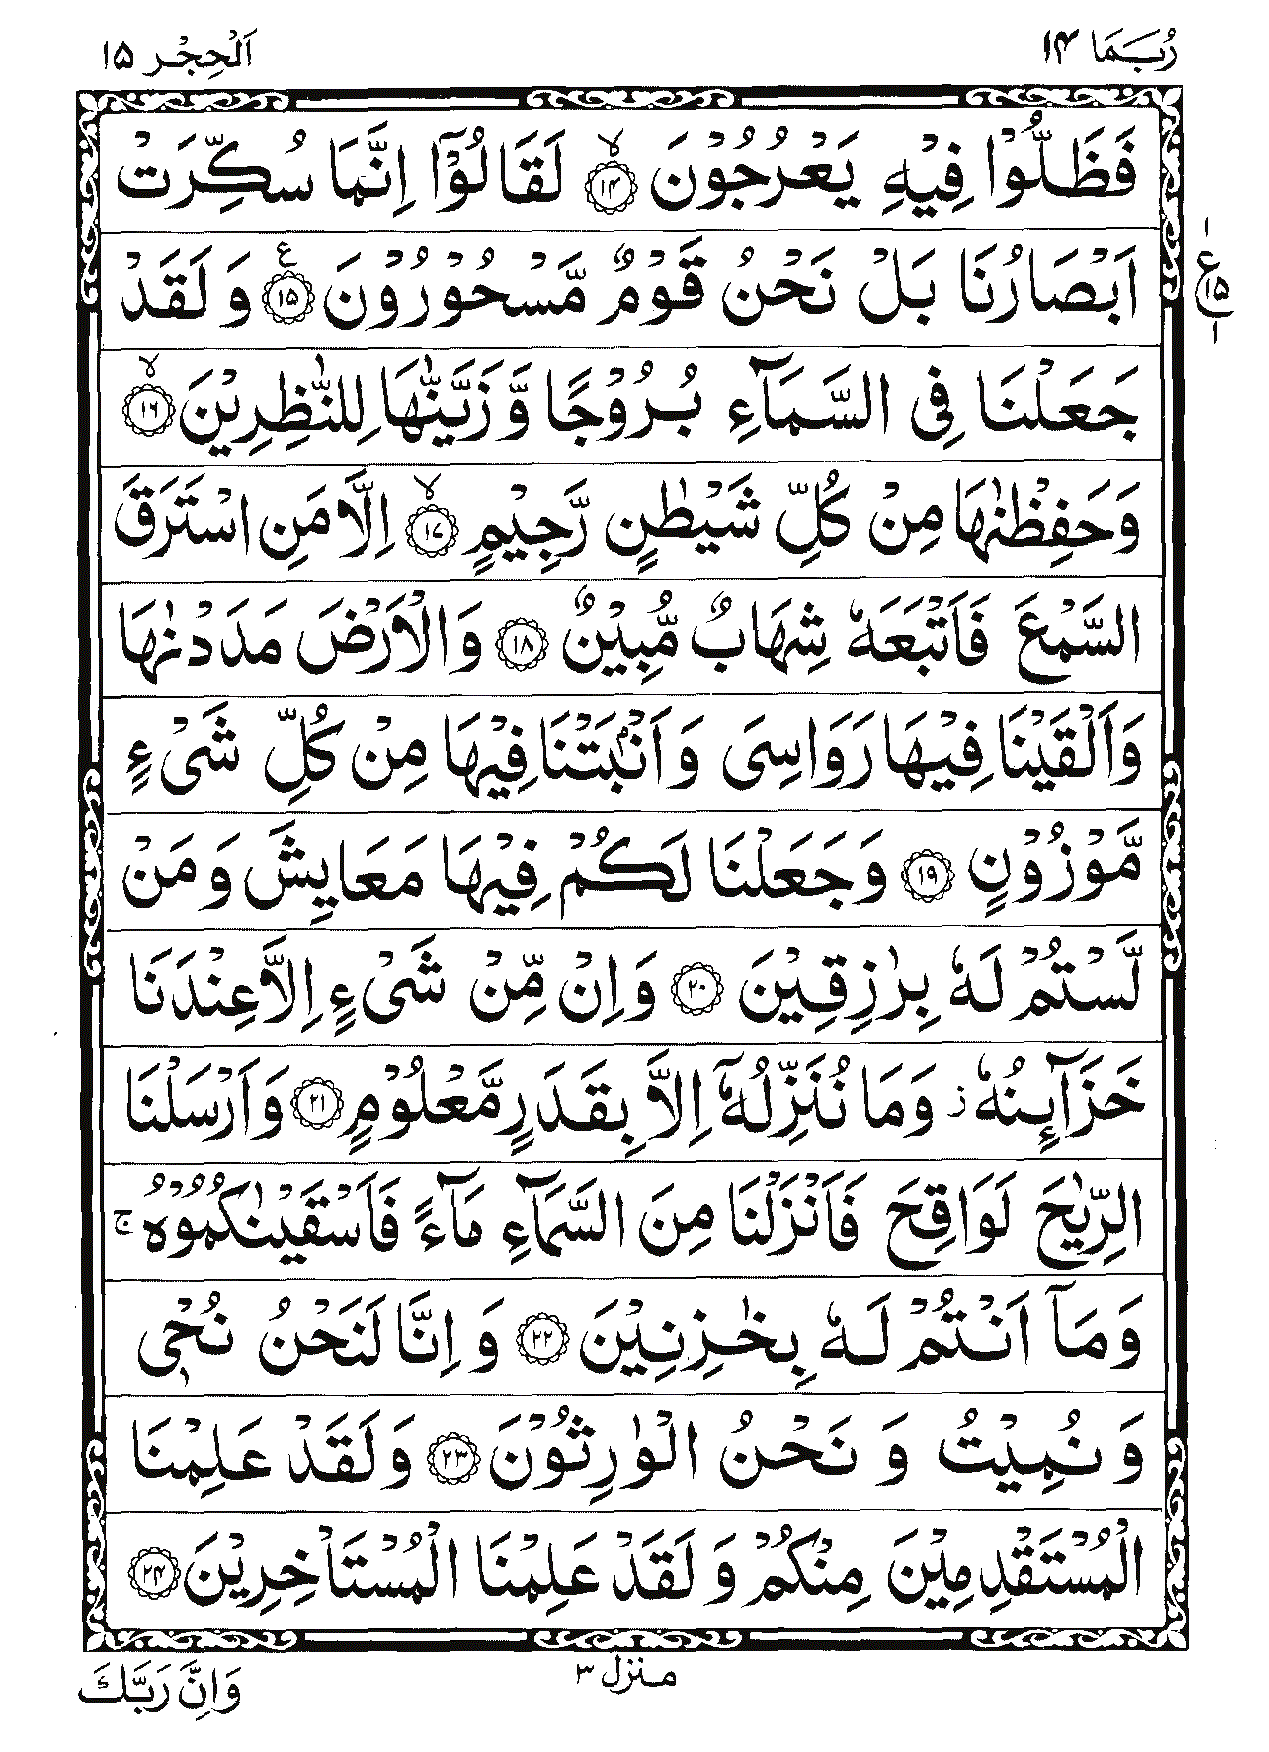 رُبَمَا ١۴
اَلْحِجْر ١۵
فَظَلُّوْا فِيْهِ يَعْرُجُوْنَ ۙ﴿١۴﴾ لَقَالُوْۤا اِنَّمَا سُكِّرَتْ
اَبْصَارُنَا بَلْ نَحْنُ قَوْمٌ مَّسْحُوْرُوْنَ ﴿١۵﴾ ع وَ لَقَدْ
ع
١
١۵
١
جَعَلْنَا فِى السَّمَآءِ بُرُوْجًا وَّ زَيَّنّٰهَا لِلنّٰظِرِيْنَ ۙ﴿١٦﴾
وَحَفِظْنٰهَا مِنْ كُلِّ شَيْطٰنٍ رَّجِيْمٍ ۙ﴿١٧﴾ اِلَّا مَنِ اسْتَرَقَ
السَّمْعَ فَاَتْبَعَهٗ شِهَابٌ مُّبِيْنٌ ﴿١٨﴾ وَالْاَرْضَ مَدَدْنٰهَا
وَاَلْقَيْنَا فِيْهَا رَوَاسِىَ وَ اَنْۢبَتْنَا فِيْهَا مِنْ كُلِّ شَىْءٍ
مَّوْزُوْنٍ ﴿١٩﴾ وَجَعَلْنَا لَكُمْ فِيْهَا مَعَايِشَ وَ مَنْ
لَّسْتُمْ لَهٗ بِرٰزِقِيْنَ ﴿٢٠﴾ وَاِنْ مِّنْ شَىْءٍ اِلَّا عِنْدَنَا
خَزَآئِنُهٗ ز وَمَا نُنَزِّلُهٗۤ اِلَّا بِقَدَرٍ مَّعْلُوْمٍ ﴿٢١﴾ وَاَرْسَلْنَا
الرِّيٰحَ لَوَاقِحَ فَاَنْزَلْنَا مِنَ السَّمَآءِ مَآءً فَاَسْقَيْنٰكُمُوْهُ ج
وَمَاۤ اَنْتُمْ لَهٗ بِخٰزِنِيْنَ ﴿٢٢﴾ وَ اِنَّا لَنَحْنُ نُحْىٖ
وَ نُمِيْتُ وَ نَحْنُ الْوٰرِثُوْنَ ﴿٢٣﴾ وَ لَقَدْ عَلِمْنَا
الْمُسْتَقْدِمِيْنَ مِنْكُمْ وَ لَقَدْ عَلِمْنَا الْمُسْتَاْخِرِيْنَ ﴿٢۴﴾
منزل ٣
وَاِنَّ رَبَّكَ